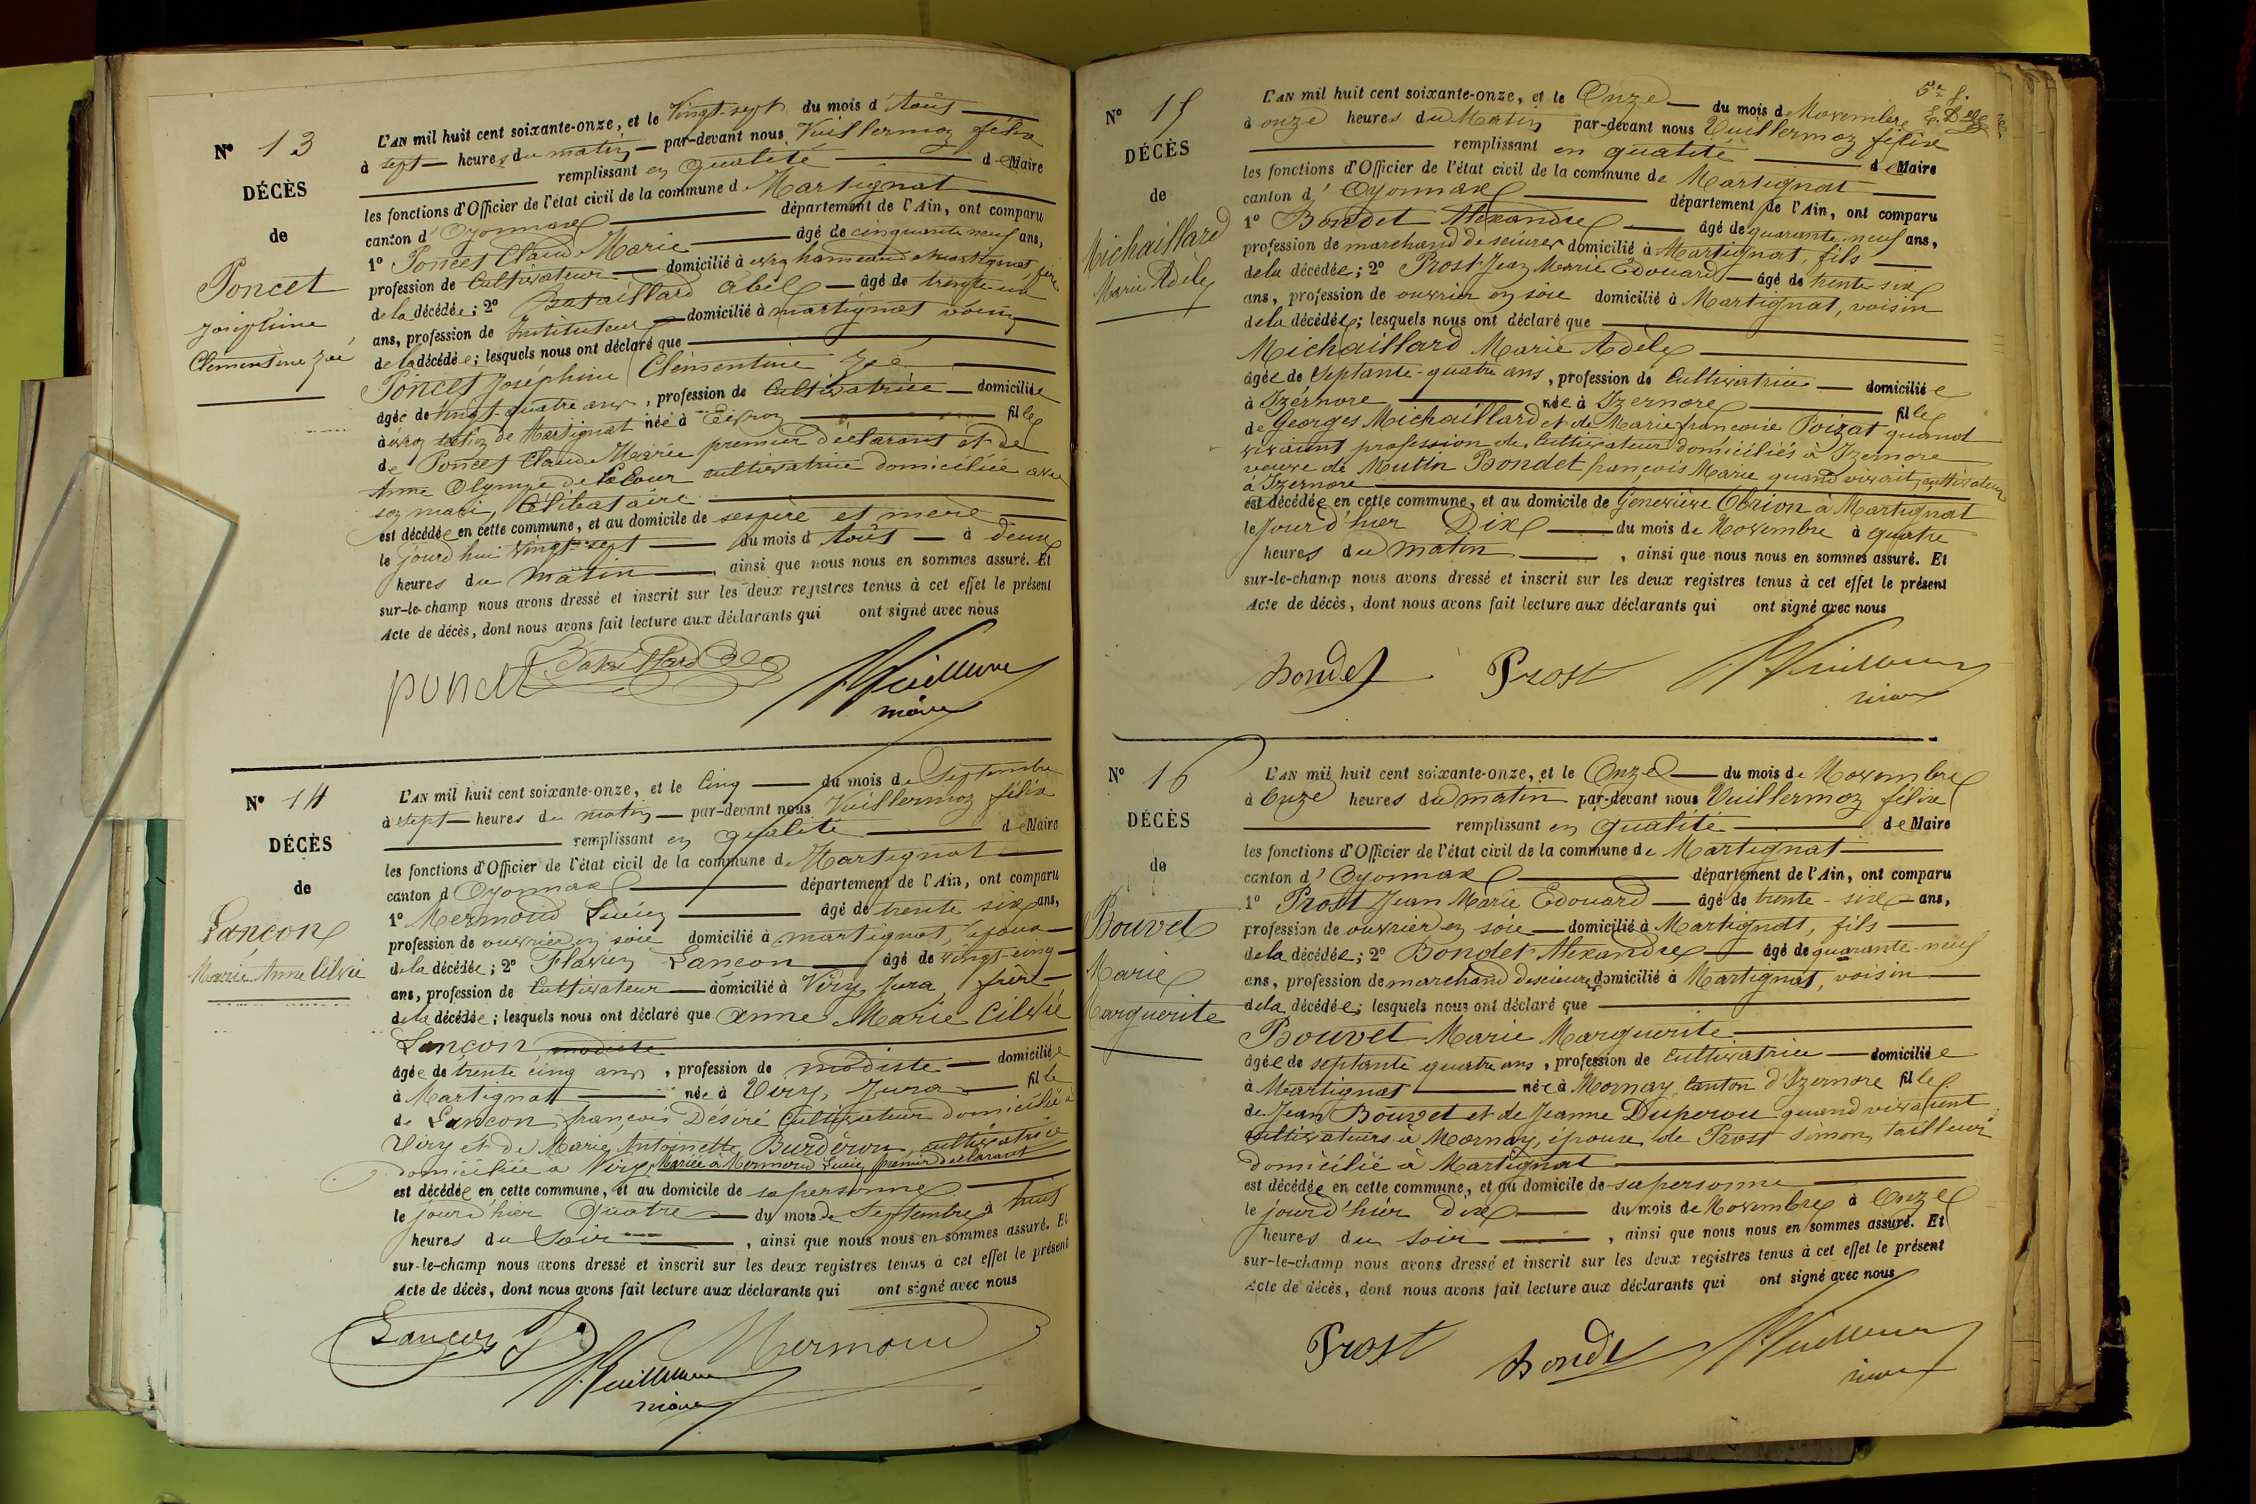 N° 13
DÉCÈS
de
Poncet
Joséphine
Clémentine Zoé
L'AN mil huit cent soixante-onze, et le Vingt-sept du mois d'Août
à sept heures du matin par-devant nous Vuillermoz félix
remplissant en qualité de Maire
les fonctions d'Officier de l'état civil de la commune de Martignat
canton d'Oyonnax département de l'Ain, ont comparu
1° Poncet Claude Marie âgé de cinquante neuf ans,
profession de Cultivateur domicilié à hameau de Martignat, père
de la décédée; 2° Bataillard Abel âgé de trente un
ans, profession de Instituteur domicilié à martignat voisin
de la décédée; lesquels nous ont déclaré que
Poncet Joséphine Clémentine Zoé
âgée de vingt-quatre ans, profession de Cultivatrice domiciliée
à section de Martignat née à fille
de Poncet Claude Marie premier déclarant et de
Anne Olympe de LaCour cultivatrice domiciliée avec
son mari, Célibataire
est décédée en cette commune, et au domicile de ses père et mère
le jourd'hui vingt-sept du mois d'Août à deux
heures du matin, ainsi que nous nous en sommes assuré. Et
sur-le-champ nous avons dressé et inscrit sur les deux registres tenus à cet effet le présent
Acte de décès, dont nous avons fait lecture aux déclarants qui ont signé avec nous
poncet Bataillard
maire
N° 14
DÉCÈS
de
Lançon
Marie Anne Cilvie
L'AN mil huit cent soixante-onze, et le Cinq du mois de Septembre
à sept heures du matin par-devant nous Vuillermoz félix
remplissant en qualité de Maire
les fonctions d'Officier de l'état civil de la commune de Martignat
canton d'Oyonnax département de l'Ain, ont comparu
1° Mermoud Lucien âgé de trente six ans,
profession de ouvrier en soie domicilié à martignat, époux
de la décédée; 2° Flavien Lançon âgé de vingt-cinq
ans, profession de Cultivateur domicilié à Viry Jura frère
de la décédée; lesquels nous ont déclaré que Anne Marie Cilvie
Lançon modiste
âgée de trente cinq ans, profession de modiste domiciliée
à Martignat née à Viry, Jura fille
de Lançon françois Désiré Cultivateur domicilié à
Viry et de Marie Antoinette Burderon cultivatrice
domiciliée à Viry, Mariée à Mermoud Lucien premier déclarant
est décédée en cette commune, et au domicile de sa personne
le jourd'hier Quatre du mois de Septembre à huit
heures du Soir, ainsi que nous nous en sommes assuré. Et
sur-le-champ nous avons dressé et inscrit sur les deux registres tenus à cet effet le présent
Acte de décès, dont nous avons fait lecture aux déclarants qui ont signé avec nous
Lançon Mermoud
maire
5e f.
N° 15
DÉCÈS
de
Michaillard
Marie Adèle
L'AN mil huit cent soixante-onze, et le Onze du mois de Novembre
à onze heures du Matin par-devant nous Vuillermoz félix
remplissant en qualité de Maire
les fonctions d'Officier de l'état civil de la commune de Martignat
canton d'Oyonnax département de l'Ain, ont comparu
1° Bondet Alexandre âgé de quarante neuf ans,
profession de marchand de sciures domicilié à Martignat, fils
de la décédée; 2° Prost Jean Marie Edouard âgé de trente-six
ans, profession de ouvrier en soie domicilié à Martignat, voisin
de la décédée; lesquels nous ont déclaré que
Michaillard Marie Adèle
âgée de Septante-quatre ans, profession de Cultivatrice domiciliée
à Izernore née à Izernore fille
de Georges Michaillard et de Marie françoise Poizat quand
vivaient profession de Cultivateur domiciliés à Izernore
veuve de Mutin Bondet françois Marie quand vivait, cultivateur
à Izernore
est décédée en cette commune, et au domicile de Geneviève à Martignat
le jourd'hier Dix du mois de Novembre à quatre
heures du matin, ainsi que nous nous en sommes assuré. Et
sur-le-champ nous avons dressé et inscrit sur les deux registres tenus à cet effet le présent
Acte de décès, dont nous avons fait lecture aux déclarants qui ont signé avec nous
Bondet Prost
maire
N° 16
DÉCÈS
de
Bouvet
Marie
Marguerite
L'AN mil huit cent soixante-onze, et le Onze du mois de Novembre
à Onze heures du matin par-devant nous Vuillermoz félix
remplissant en qualité de Maire
les fonctions d'Officier de l'état civil de la commune de Martignat
canton d'Oyonnax département de l'Ain, ont comparu
1° Prost Jean Marie Edouard âgé de trente-six ans,
profession de ouvrier en soie domicilié à Martignat, fils
de la décédée; 2° Bondet Alexandre âgé de quarante-neuf
ans, profession de marchand de sciures domicilié à Martignat, voisin
de la décédée; lesquels nous ont déclaré que
Bouvet Marie Marguerite
âgée de septante quatre ans, profession de Cultivatrice domiciliée
à Martignat née à Mornay Canton d'Izernore fille
de Jean Bouvet et de Jeanne Duperou quand vivaient
cultivateurs à Mornay, épouse de Prost Simon, tailleur
domicilié à Martignat
est décédée en cette commune, et au domicile de sa personne
le jourd'hier dix du mois de Novembre à Onze
heures du Soir, ainsi que nous nous en sommes assuré. Et
sur-le-champ nous avons dressé et inscrit sur les deux registres tenus à cet effet le présent
Acte de décès, dont nous avons fait lecture aux déclarants qui ont signé avec nous
Prost Bondet
maire